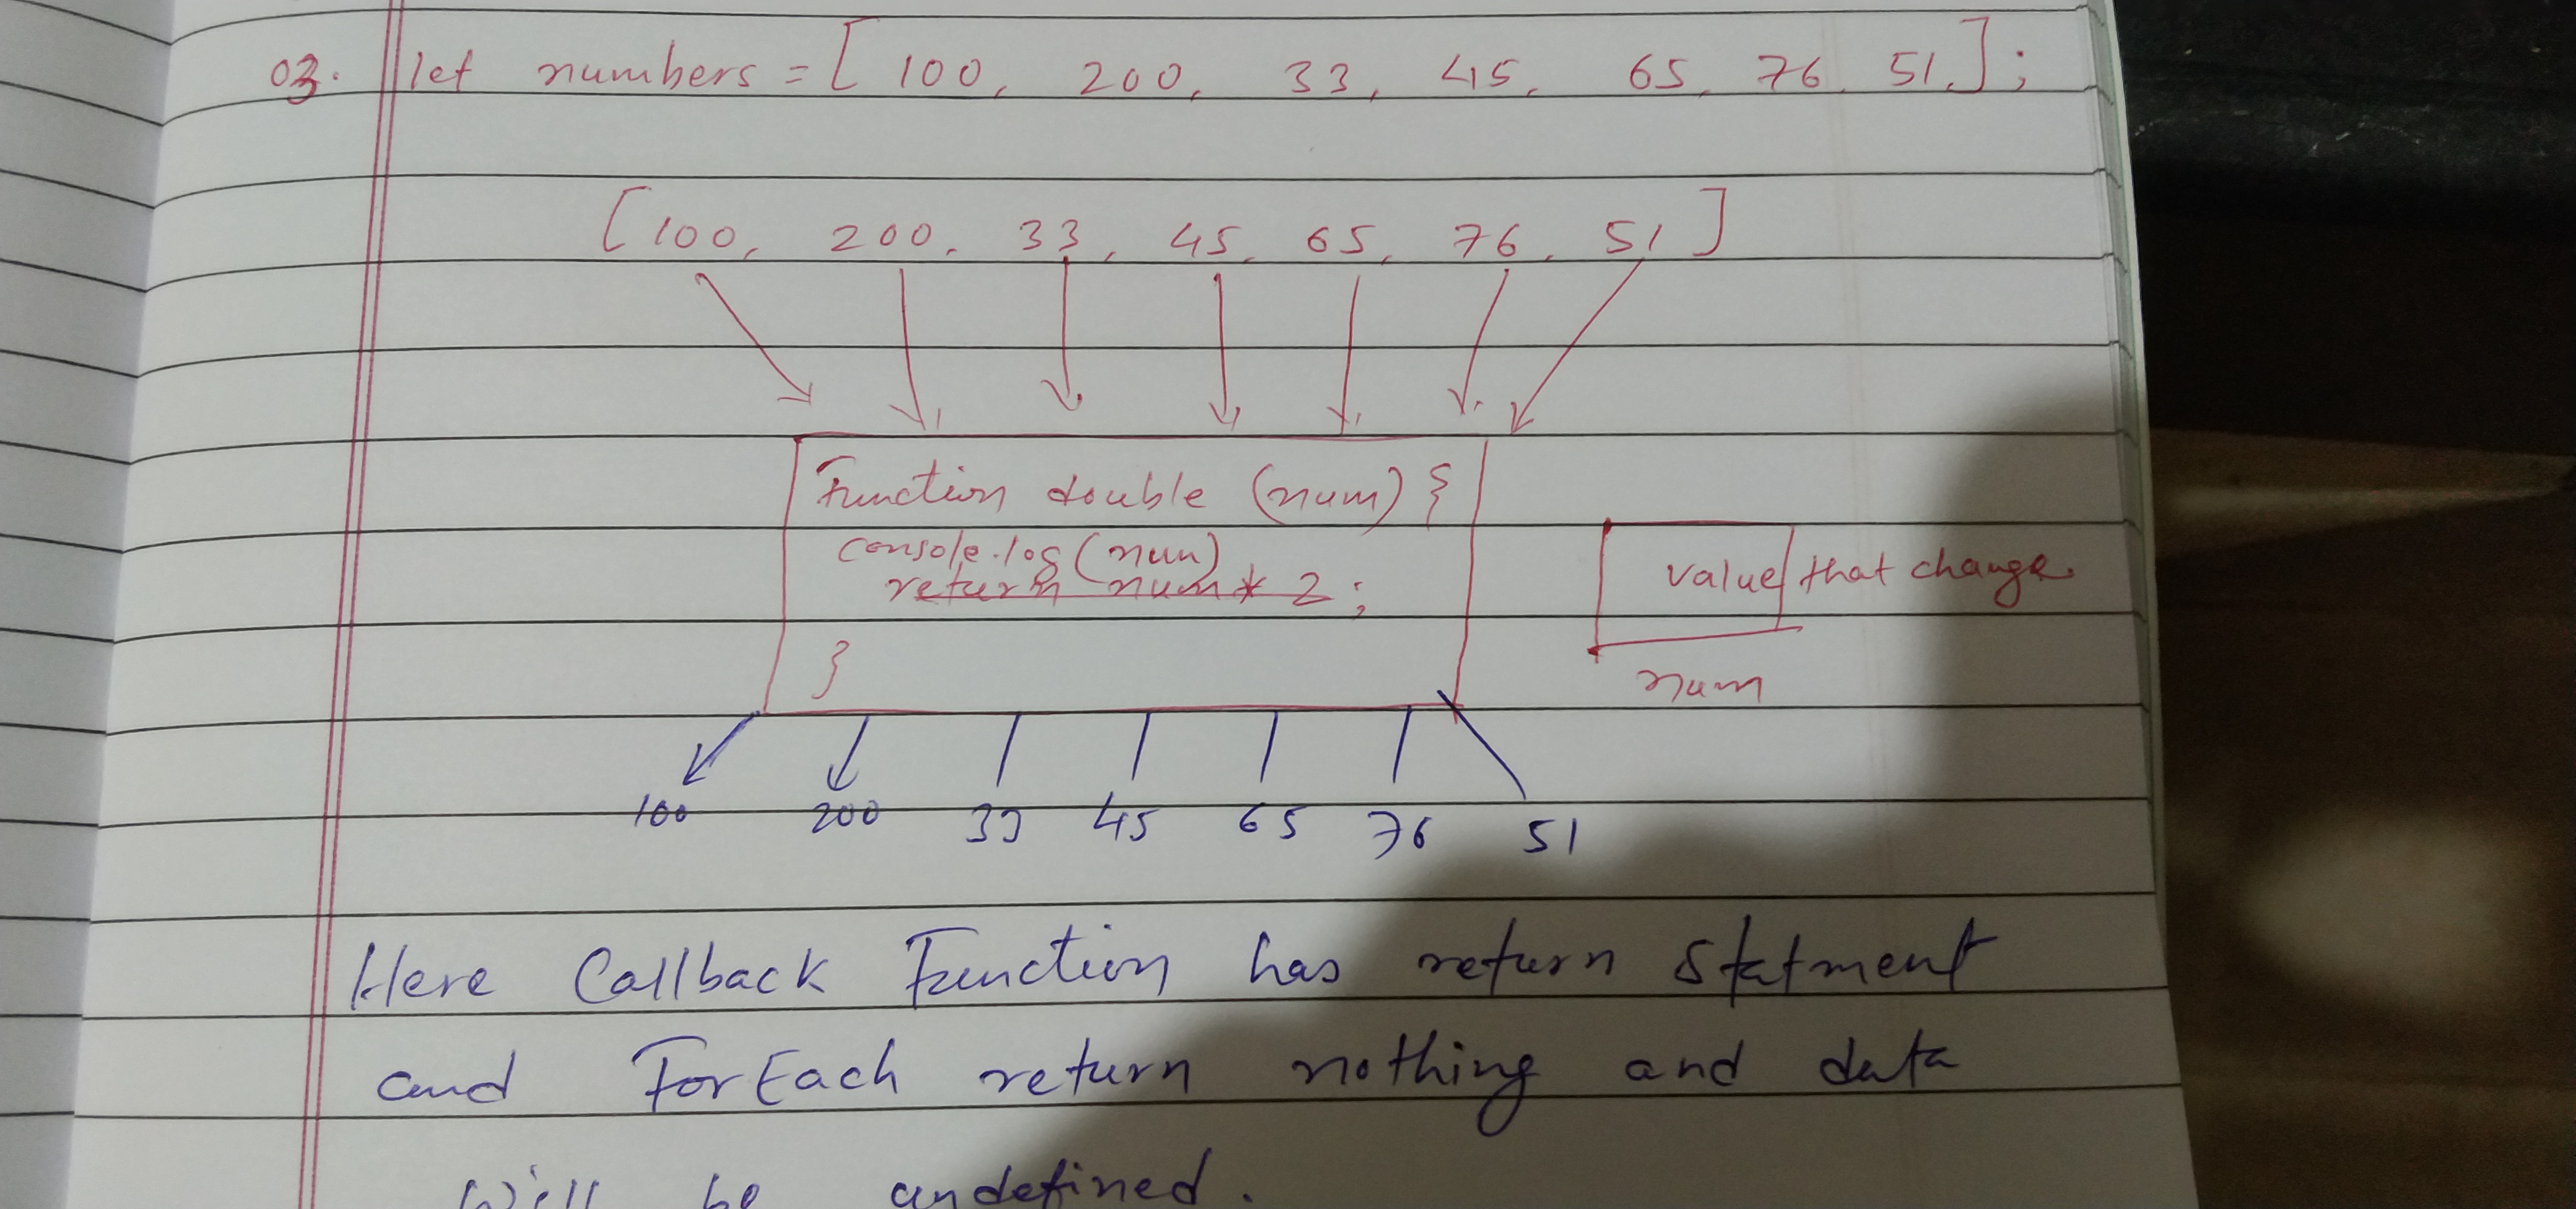 03. let numbers = [ 100, 200, 33, 45, 65, 76, 51, ];
[100, 200, 33, 45, 65, 76, 51 ]
Function double (num) {
console.log(num)
return num * 2;
}
value that change.
num
100 200 33 45 65 76 51
Here Callback Function has return Statment
and ForEach return nothing and data
will be undefined.